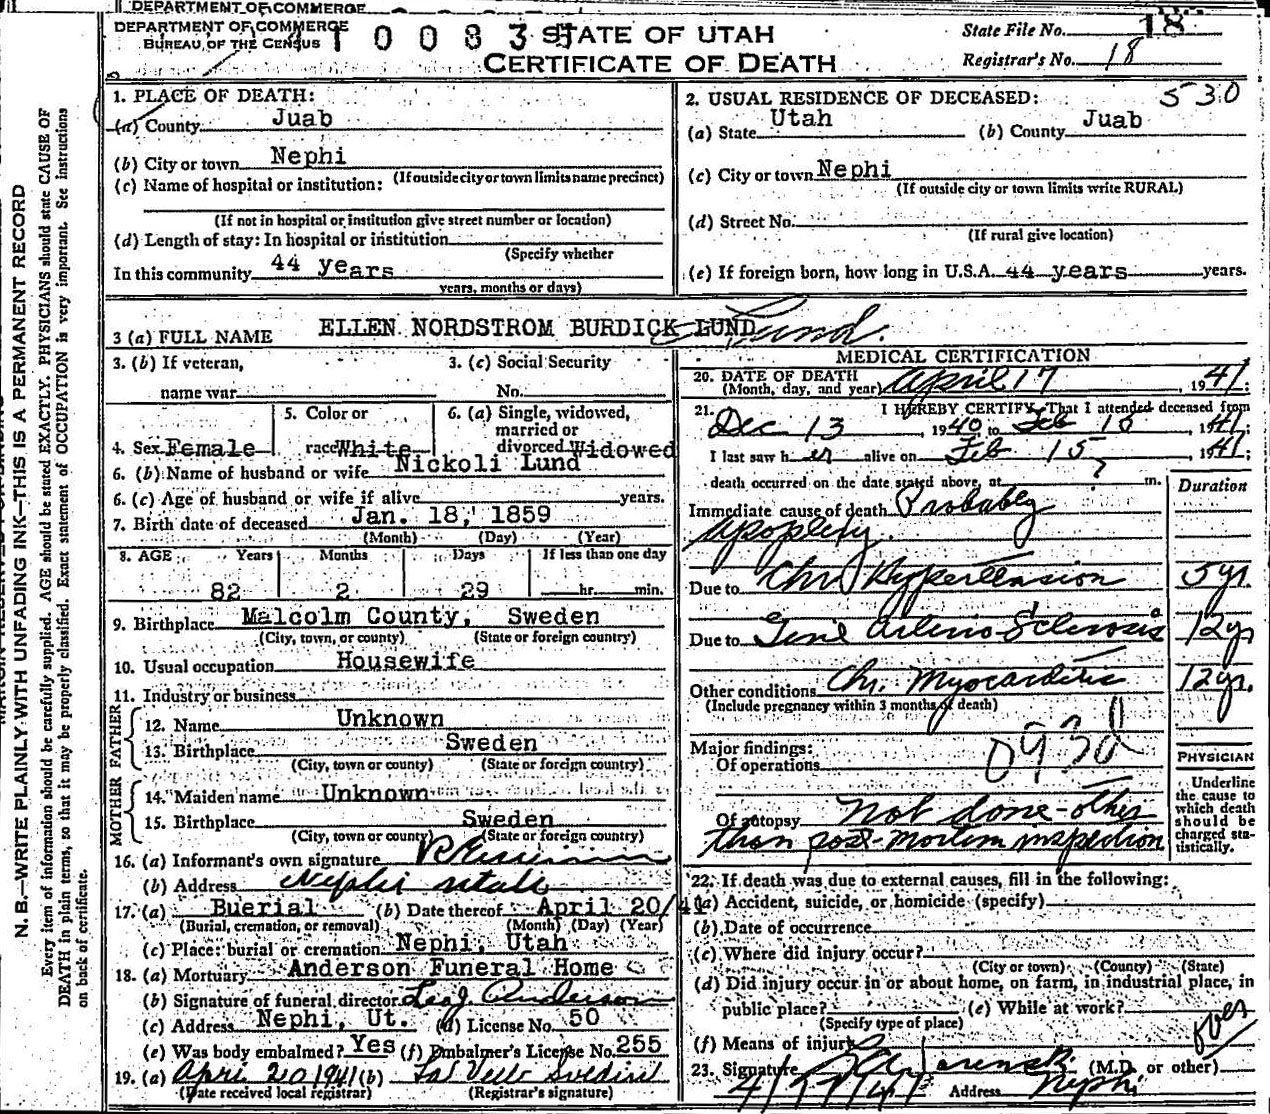 DEPARTMENT OF COMMERCE
DEPARTMENT OF COMMERCE
BUREAU OF THE CENSUS
STATE OF UTAH
CERTIFICATE OF DEATH
State File No. 18
Registrar's No. 18
530
1. PLACE OF DEATH:
(a) County Juab
(b) City or town Nephi
(If outside city or town limits name precinct)
(c) Name of hospital or institution:
(If not in hospital or institution give street number or location)
(d) Length of stay: In hospital or institution
(Specify whether
In this community 44 years
years, months or days)
2. USUAL RESIDENCE OF DECEASED:
(a) State Utah (b) County Juab
(c) City or town Nephi
(If outside city or town limits write RURAL)
(d) Street No.
(If rural give location)
(e) If foreign born, how long in U.S.A. 44 years years.
3 (a) FULL NAME ELLEN NORDSTROM BURDICK LUND Lund.
3. (b) If veteran,
name war
3. (c) Social Security
No.
4. Sex Female
5. Color or
race White
6. (a) Single, widowed,
married or
divorced Widowed
6. (b) Name of husband or wife Nickoli Lund
6. (c) Age of husband or wife if alive years.
7. Birth date of deceased Jan. 18, 1859
(Month) (Day) (Year)
8. AGE Years Months Days If less than one day
82 2 29 hr. min.
9. Birthplace Malcolm County, Sweden
(City, town, or county) (State or foreign country)
10. Usual occupation Housewife
11. Industry or business
FATHER
12. Name Unknown
13. Birthplace Sweden
(City, town or county) (State or foreign country)
MOTHER
14. Maiden name Unknown
15. Birthplace Sweden
(City, town or county) (State or foreign country)
16. (a) Informant's own signature
(b) Address Nephi Utah
17. (a) Buerial (b) Date thereof April 20/41
(Burial, cremation, or removal) (Month) (Day) (Year)
(c) Place: burial or cremation Nephi, Utah
18. (a) Mortuary Anderson Funeral Home
(b) Signature of funeral director Anderson
(c) Address Nephi, Ut. (d) License No. 50
(e) Was body embalmed? Yes (f) Embalmer's License No. 255
19. (a) Apr. 20 1941 (b)
(Date received local registrar) (Registrar's signature)
MEDICAL CERTIFICATION
20. DATE OF DEATH
(Month, day, and year) April 17, 1941;
21. I HEREBY CERTIFY, That I attended deceased from
Dec 13, 1940 to Feb 15, 1941;
I last saw her alive on Feb 15, 1941;
death occurred on the date stated above, at ? m.
Duration
Immediate cause of death Probably
apoplexy.
Due to Chr Hypertension 5 yr.
Due to Genl Arterio Sclerosis 12 yr
Other conditions Chr. Myocarditis 12 yr.
(Include pregnancy within 3 months of death)
Major findings:
Of operations
093d
Of autopsy Not done - other
than post-mortem inspection
PHYSICIAN
Underline
the cause to
which death
should be
charged sta-
tistically.
22. If death was due to external causes, fill in the following:
(a) Accident, suicide, or homicide (specify)
(b) Date of occurrence
(c) Where did injury occur?
(City or town) (County) (State)
(d) Did injury occur in or about home, on farm, in industrial place, in
public place? (e) While at work?
(Specify type of place)
(f) Means of injury
23. Signature (M.D. or other)
Address Nephi
N.B.—WRITE PLAINLY WITH UNFADING INK—THIS IS A PERMANENT RECORD
Every item of information should be carefully supplied. AGE should be stated EXACTLY. PHYSICIANS should state CAUSE OF
DEATH in plain terms, so that it may be properly classified. Exact statement of OCCUPATION is very important. See instructions
on back of certificate.